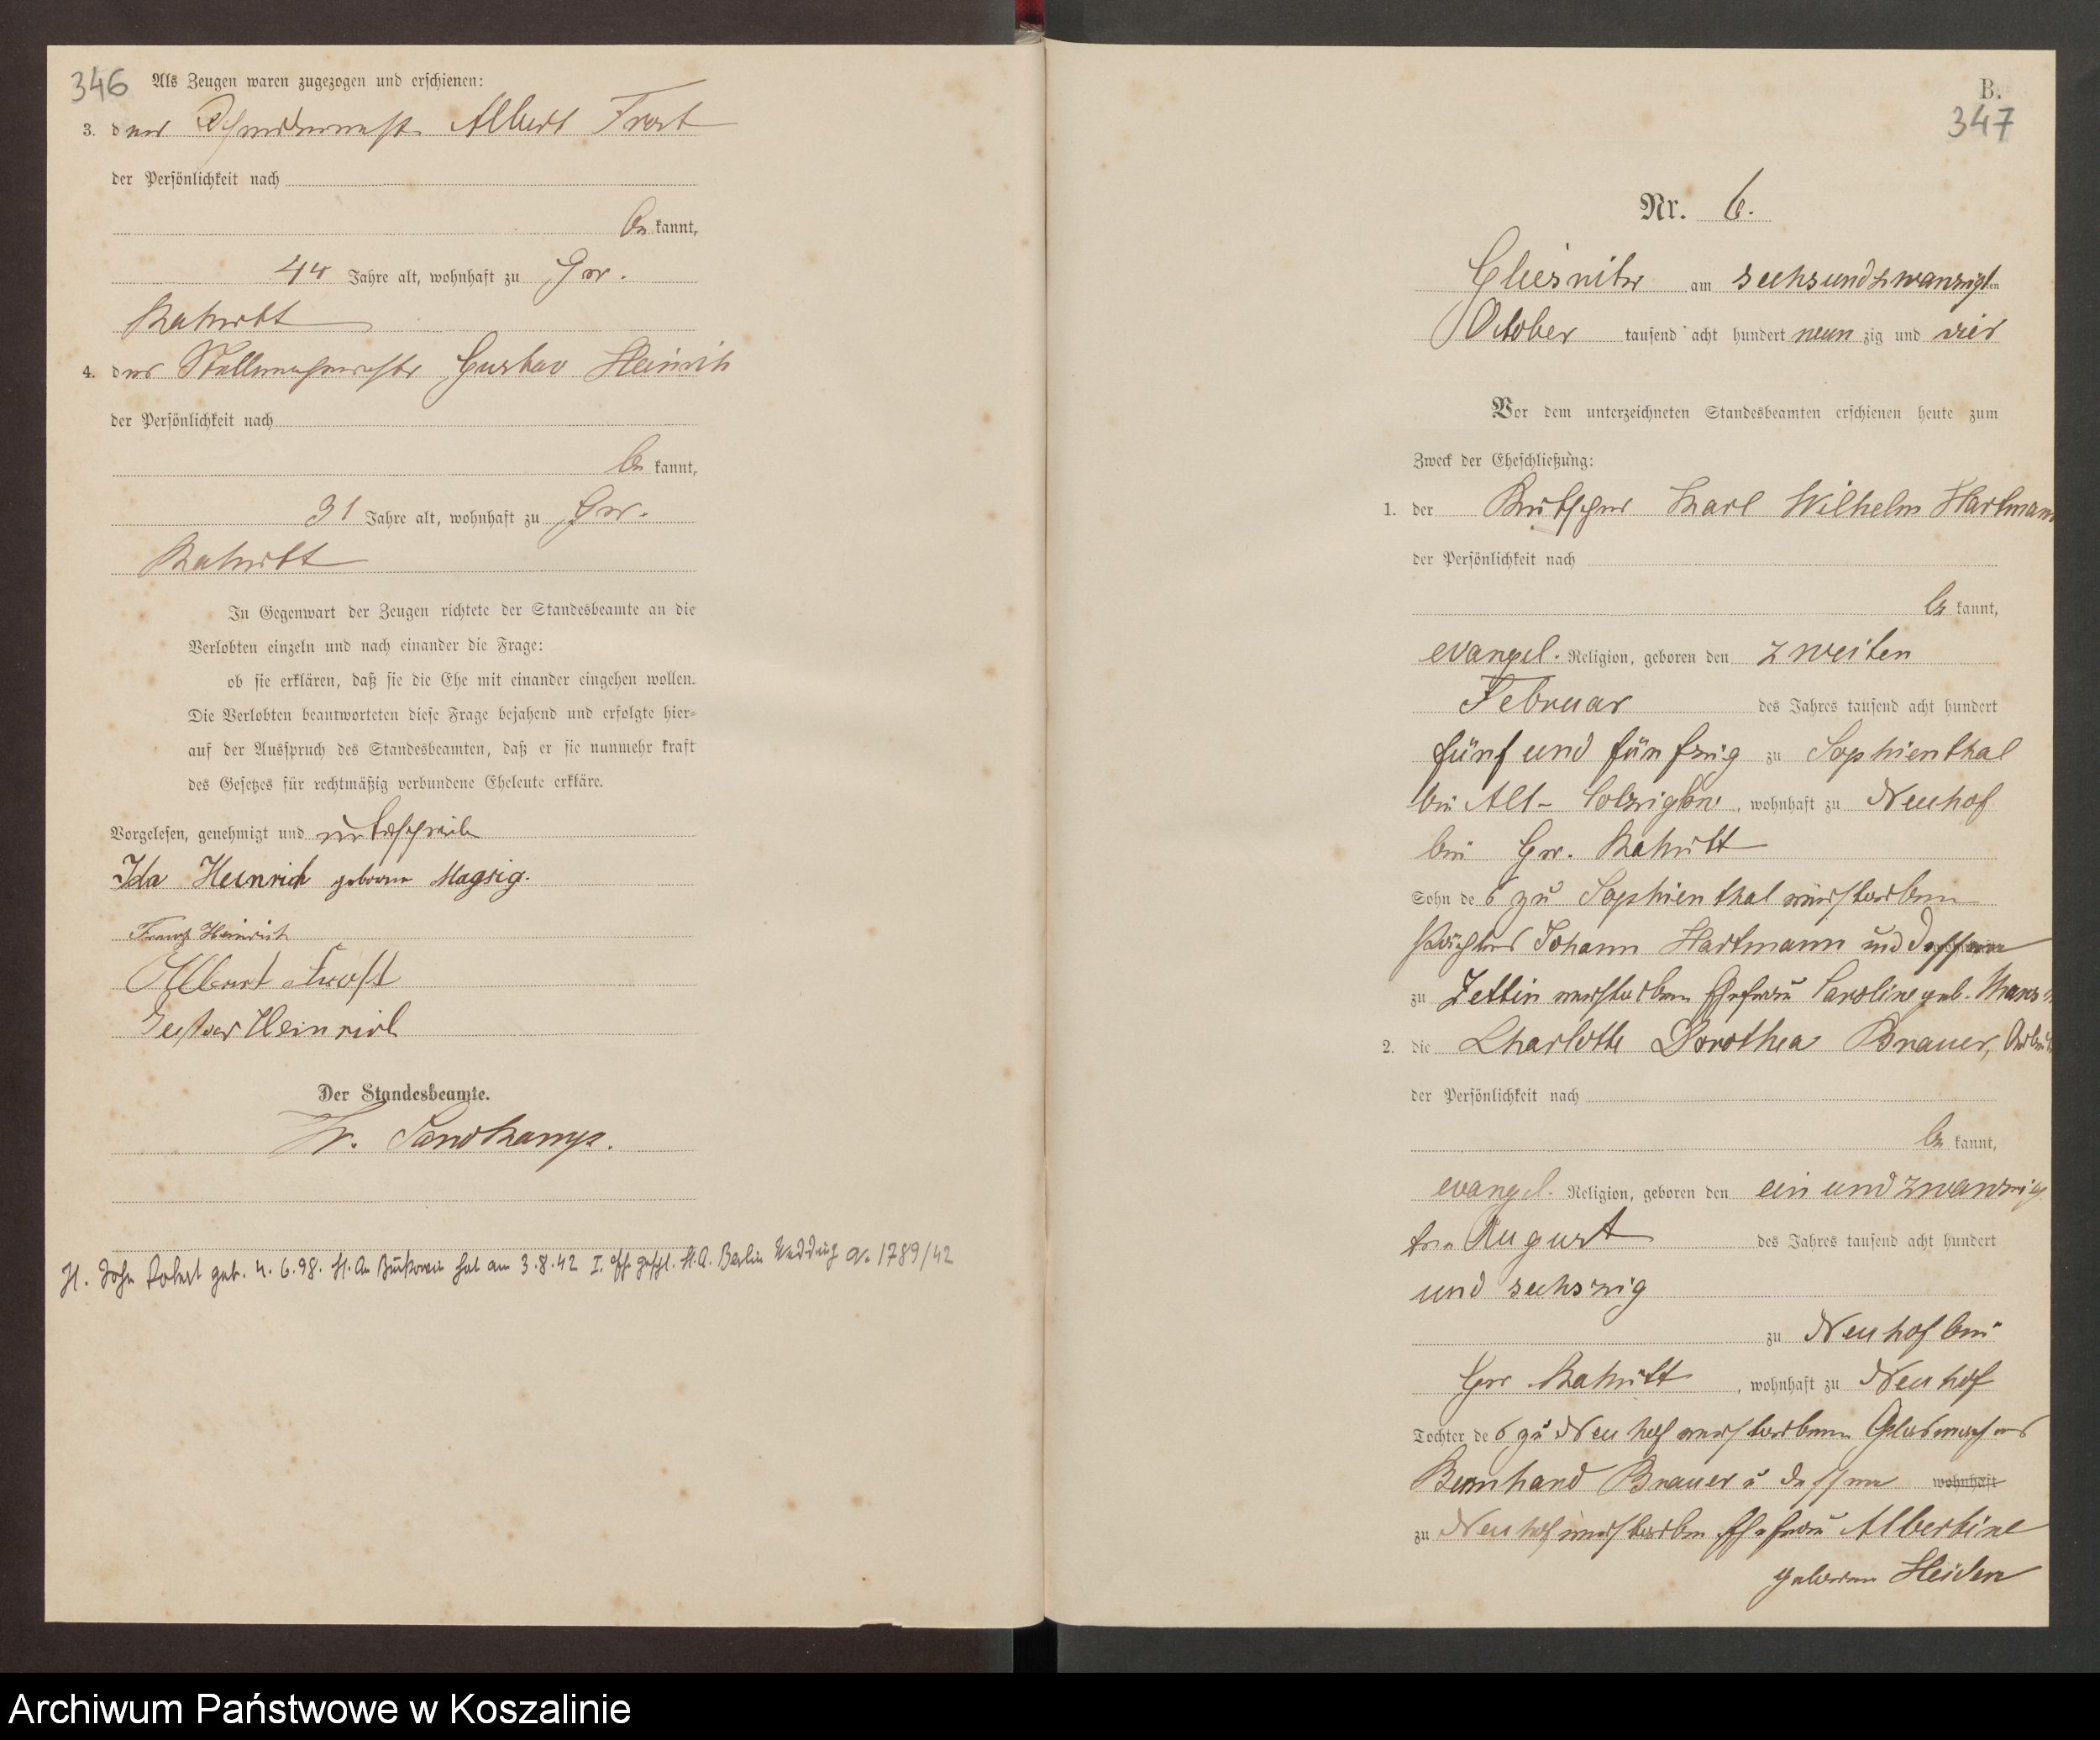 346
Als Zeugen waren zugezogen und erschienen:
3. der Albert Frost
der Persönlichkeit nach
be kannt,
44 Jahre alt, wohnhaft zu Gr.
Rakitt
4. der Stellmachermeister Gustav Heinrich
der Persönlichkeit nach
be kannt,
31 Jahre alt, wohnhaft zu Gr.
Rakitt
In Gegenwart der Zeugen richtete der Standesbeamte an die
Verlobten einzeln und nach einander die Frage:
ob sie erklären, daß sie die Ehe mit einander eingehen wollen.
Die Verlobten beantworteten diese Frage bejahend und erfolgte hier=
auf der Ausspruch des Standesbeamten, daß er sie nunmehr kraft
des Gesetzes für rechtmäßig verbundene Eheleute erkläre.
Vorgelesen, genehmigt und unterschrieben
Ida Heinrich geborene Magsig.
Franz Heinrich
Albert Frost
Gustav Heinrich
Der Standesbeamte.
Fr. Sandkamp.
H. Sohn Robert geb. 4.6.98. St.A. hat am 3.8.42 I. Ehe geschl. St.A. Berlin Wedding Nr. 1789/42
B.
347
Nr. 6.
Gliesnitz am sechsundzwanzigten
October tausend acht hundert neun zig und vier
Vor dem unterzeichneten Standesbeamten erschienen heute zum
Zweck der Eheschließung:
1. der Kutscher Karl Wilhelm Hartmann
der Persönlichkeit nach
be kannt,
evangel. Religion, geboren den zweiten
Februar des Jahres tausend acht hundert
fünf und fünfzig zu Sophienthal
bei Alt- Colziglow, wohnhaft zu Neuhof
bei Gr. Rakitt
Sohn des zu Sophienthal verstorbenen
Johann Hartmann und dessen
zu Zettin verstorbenen Ehefrau Caroline geb.
2. die Charlotte Dorothea Brauer,
der Persönlichkeit nach
be kannt,
evangel. Religion, geboren den ein und zwanzig
ten August des Jahres tausend acht hundert
und sechszig
zu Neuhof bei
Gr Rakitt, wohnhaft zu Neuhof
Tochter des zu Neuhof verstorbenen Glasmachers
Bernhard Brauer u dessen wohnhaft
zu Neuhof verstorbenen Ehefrau Albertine
geborene Heiden
Archiwum Państwowe w Koszalinie